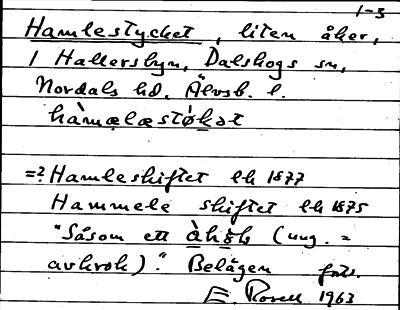 1-3
Hamlestycket, liten åker,
1 Hallersbyn, Dalskogs sn,
Nordals hd. Älvsb. l.
hàmælæstǿkət
=? Hamleskiftet lh 1877
Hammele skiftet lh 1875
"Såsom ett àkø̀k (ung. =
avkrok)." Belägen
E. Rosell 1963